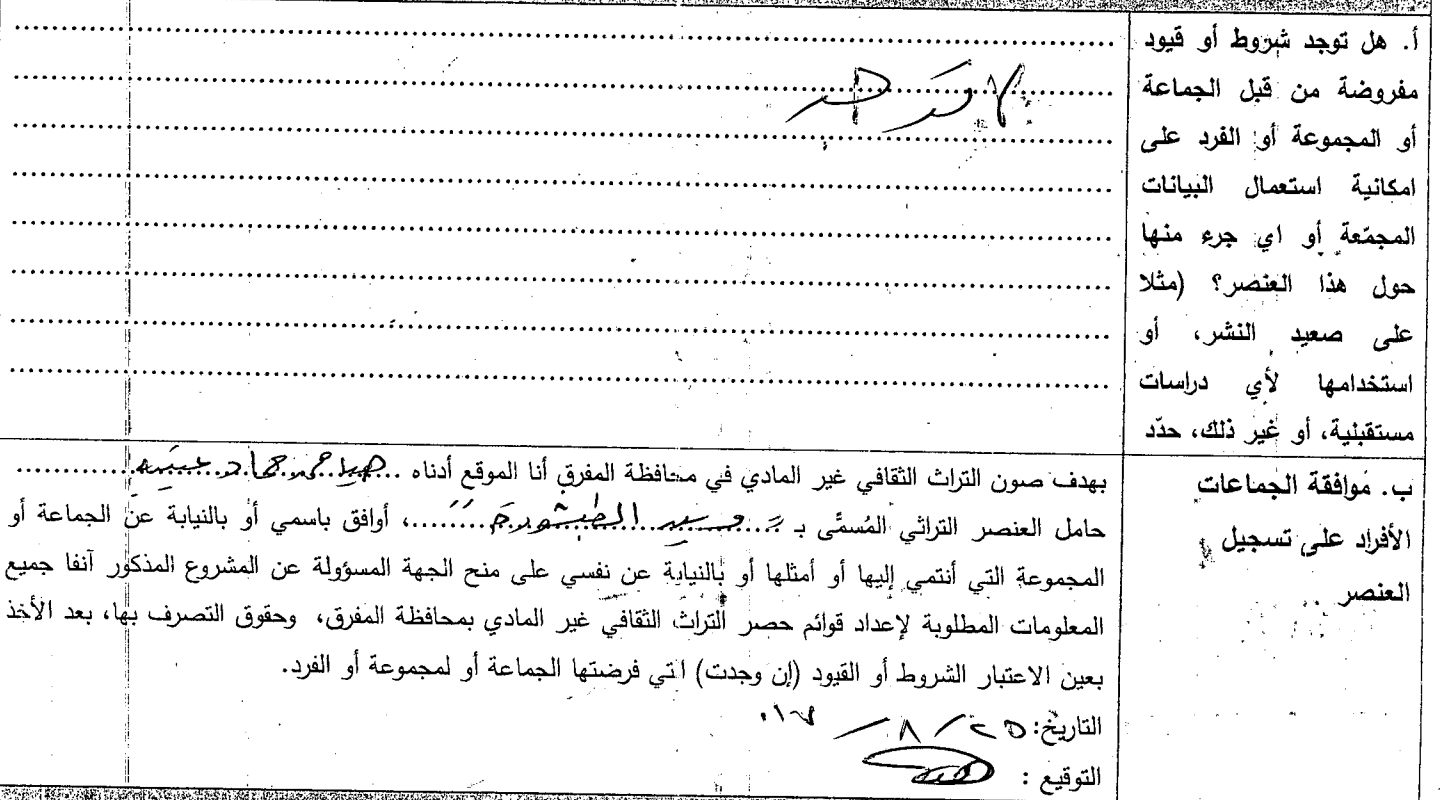 أ. هل توجد شروط أو قيود
مفروضة من قبل الجماعة
أو المجموعة أو الفرد على
امكانية استعمال البيانات
المجمّعة أو اي جرء منها
حول هذا العنصر؟ (مثلا
على صعيد النشر، أو
استخدامها لأي دراسات
مستقبلية، أو غير ذلك، حدّد
لا يوجد
ب. موافقة الجماعات
الأفراد على تسجيل
العنصر
بهدف صون التراث الثقافي غير المادي في محافظة المفرق أنا الموقع أدناه
حامل العنصر التراثي المُسمًّى بـ، أوافق باسمي أو بالنيابة عن الجماعة أو
المجموعة التي أنتمي إليها أو أمثلها أو بالنيابة عن نفسي على منح الجهة المسؤولة عن المشروع المذكور آنفا جميع
المعلومات المطلوبة لإعداد قوائم حصر التراث الثقافي غير المادي بمحافظة المفرق، وحقوق التصرف بها، بعد الأخذ
بعين الاعتبار الشروط أو القيود (إن وجدت) اتي فرضتها الجماعة أو لمجموعة أو الفرد.
التاريخ: ٢٥/٨/
التوقيع :